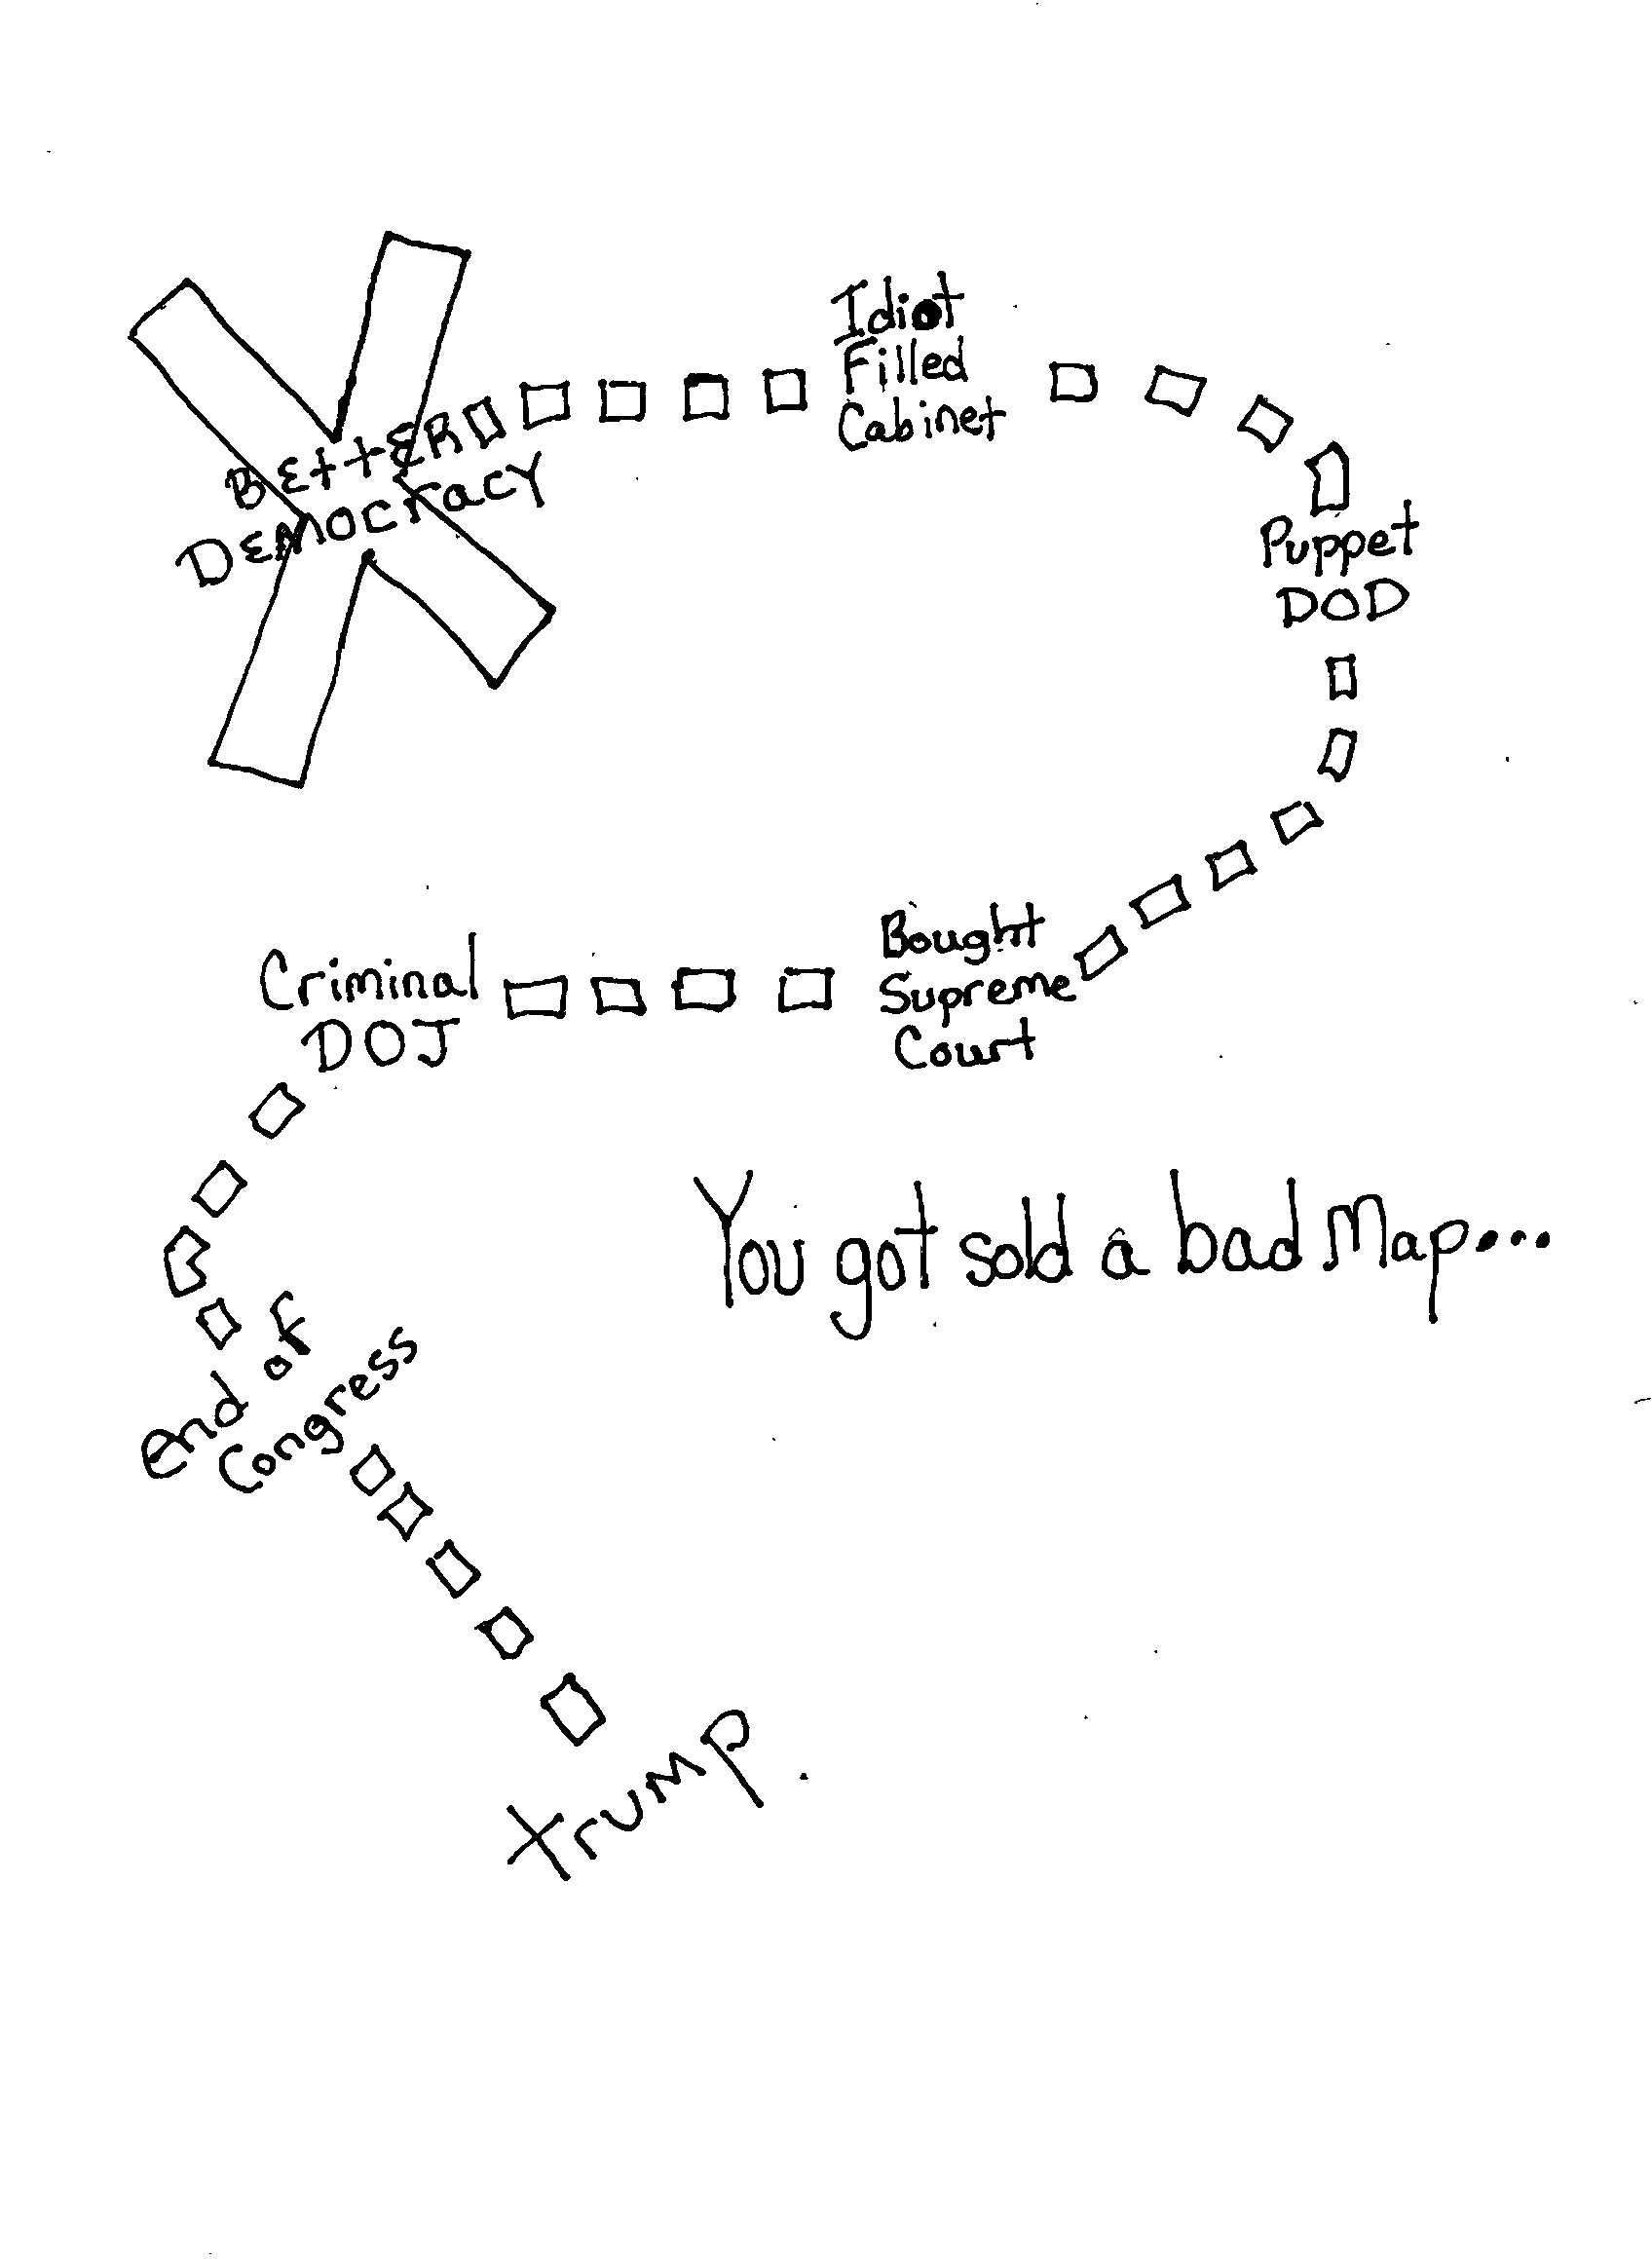 BEttER
DEMOCracY
Idiot
Filled
Cabinet
Puppet
DOD
Bought
Supreme
Court
Criminal
DOJ
You got sold a bad Map...
end of
Congress
trump